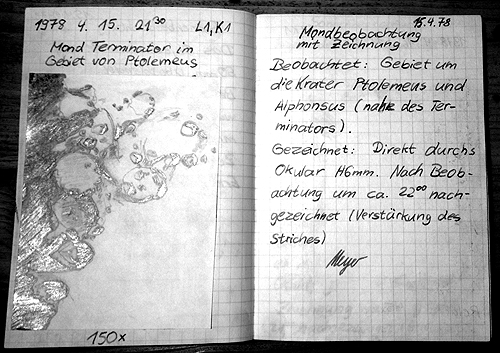 1978 4. 15. 21³⁰ L1, K1
Mond Terminator im
Gebiet von Ptolemeus
150x
15.4.78
Mondbeobachtung
mit Zeichnung
Beobachtet: Gebiet um
die Krater Ptolemeus und
Alphonsus (nahe des Ter-
minators).
Gezeichnet: Direkt durchs
Okular H6mm. Nach Beob-
achtung um ca. 22⁰⁰ nach-
gezeichnet (Verstärkung des
Striches)
Meyer